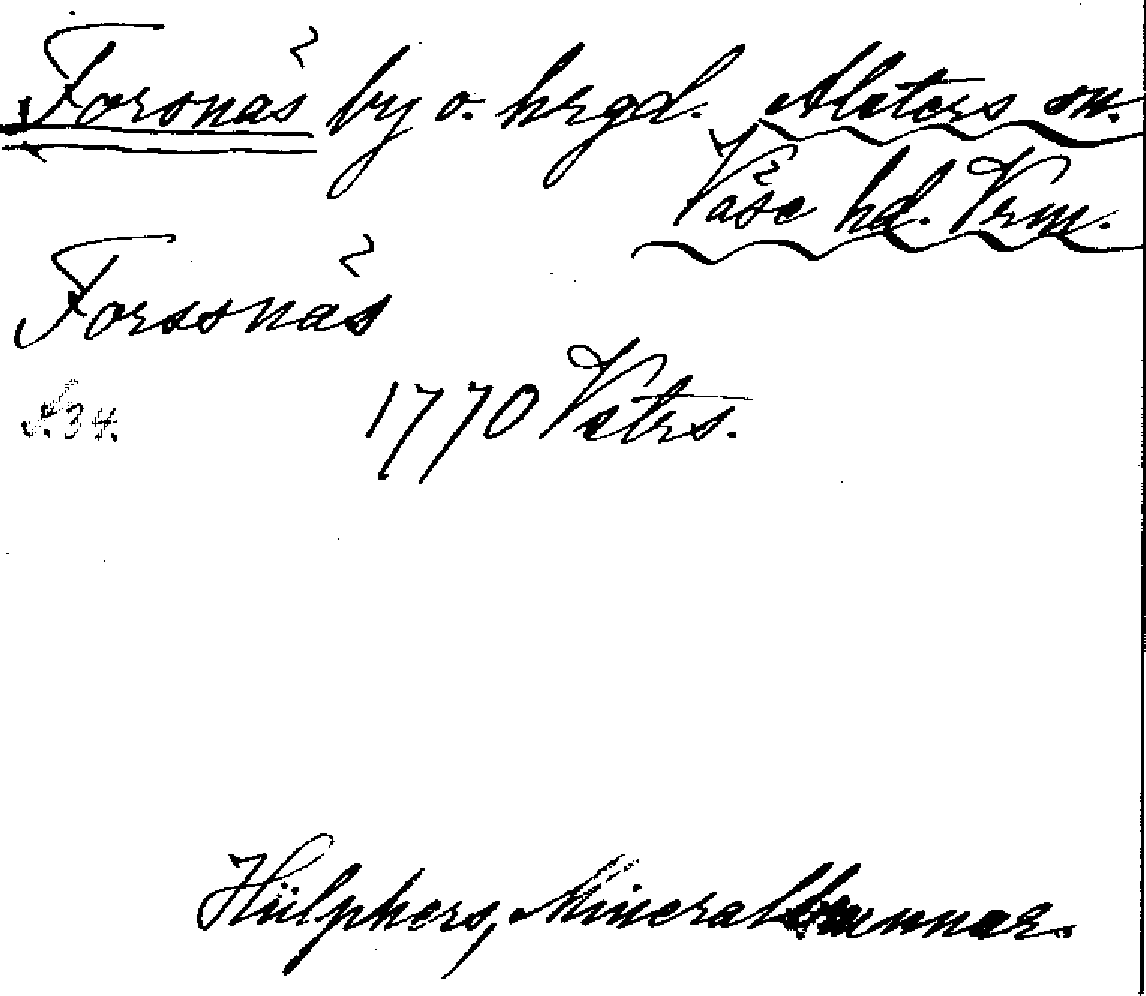 Forsnäs by o. hrgd. Alsters sn.
Väse hd. Vrm.
Forssnäs
N. 34.
1770 Vetrs.
Hülphers, Mineralbrunnar.